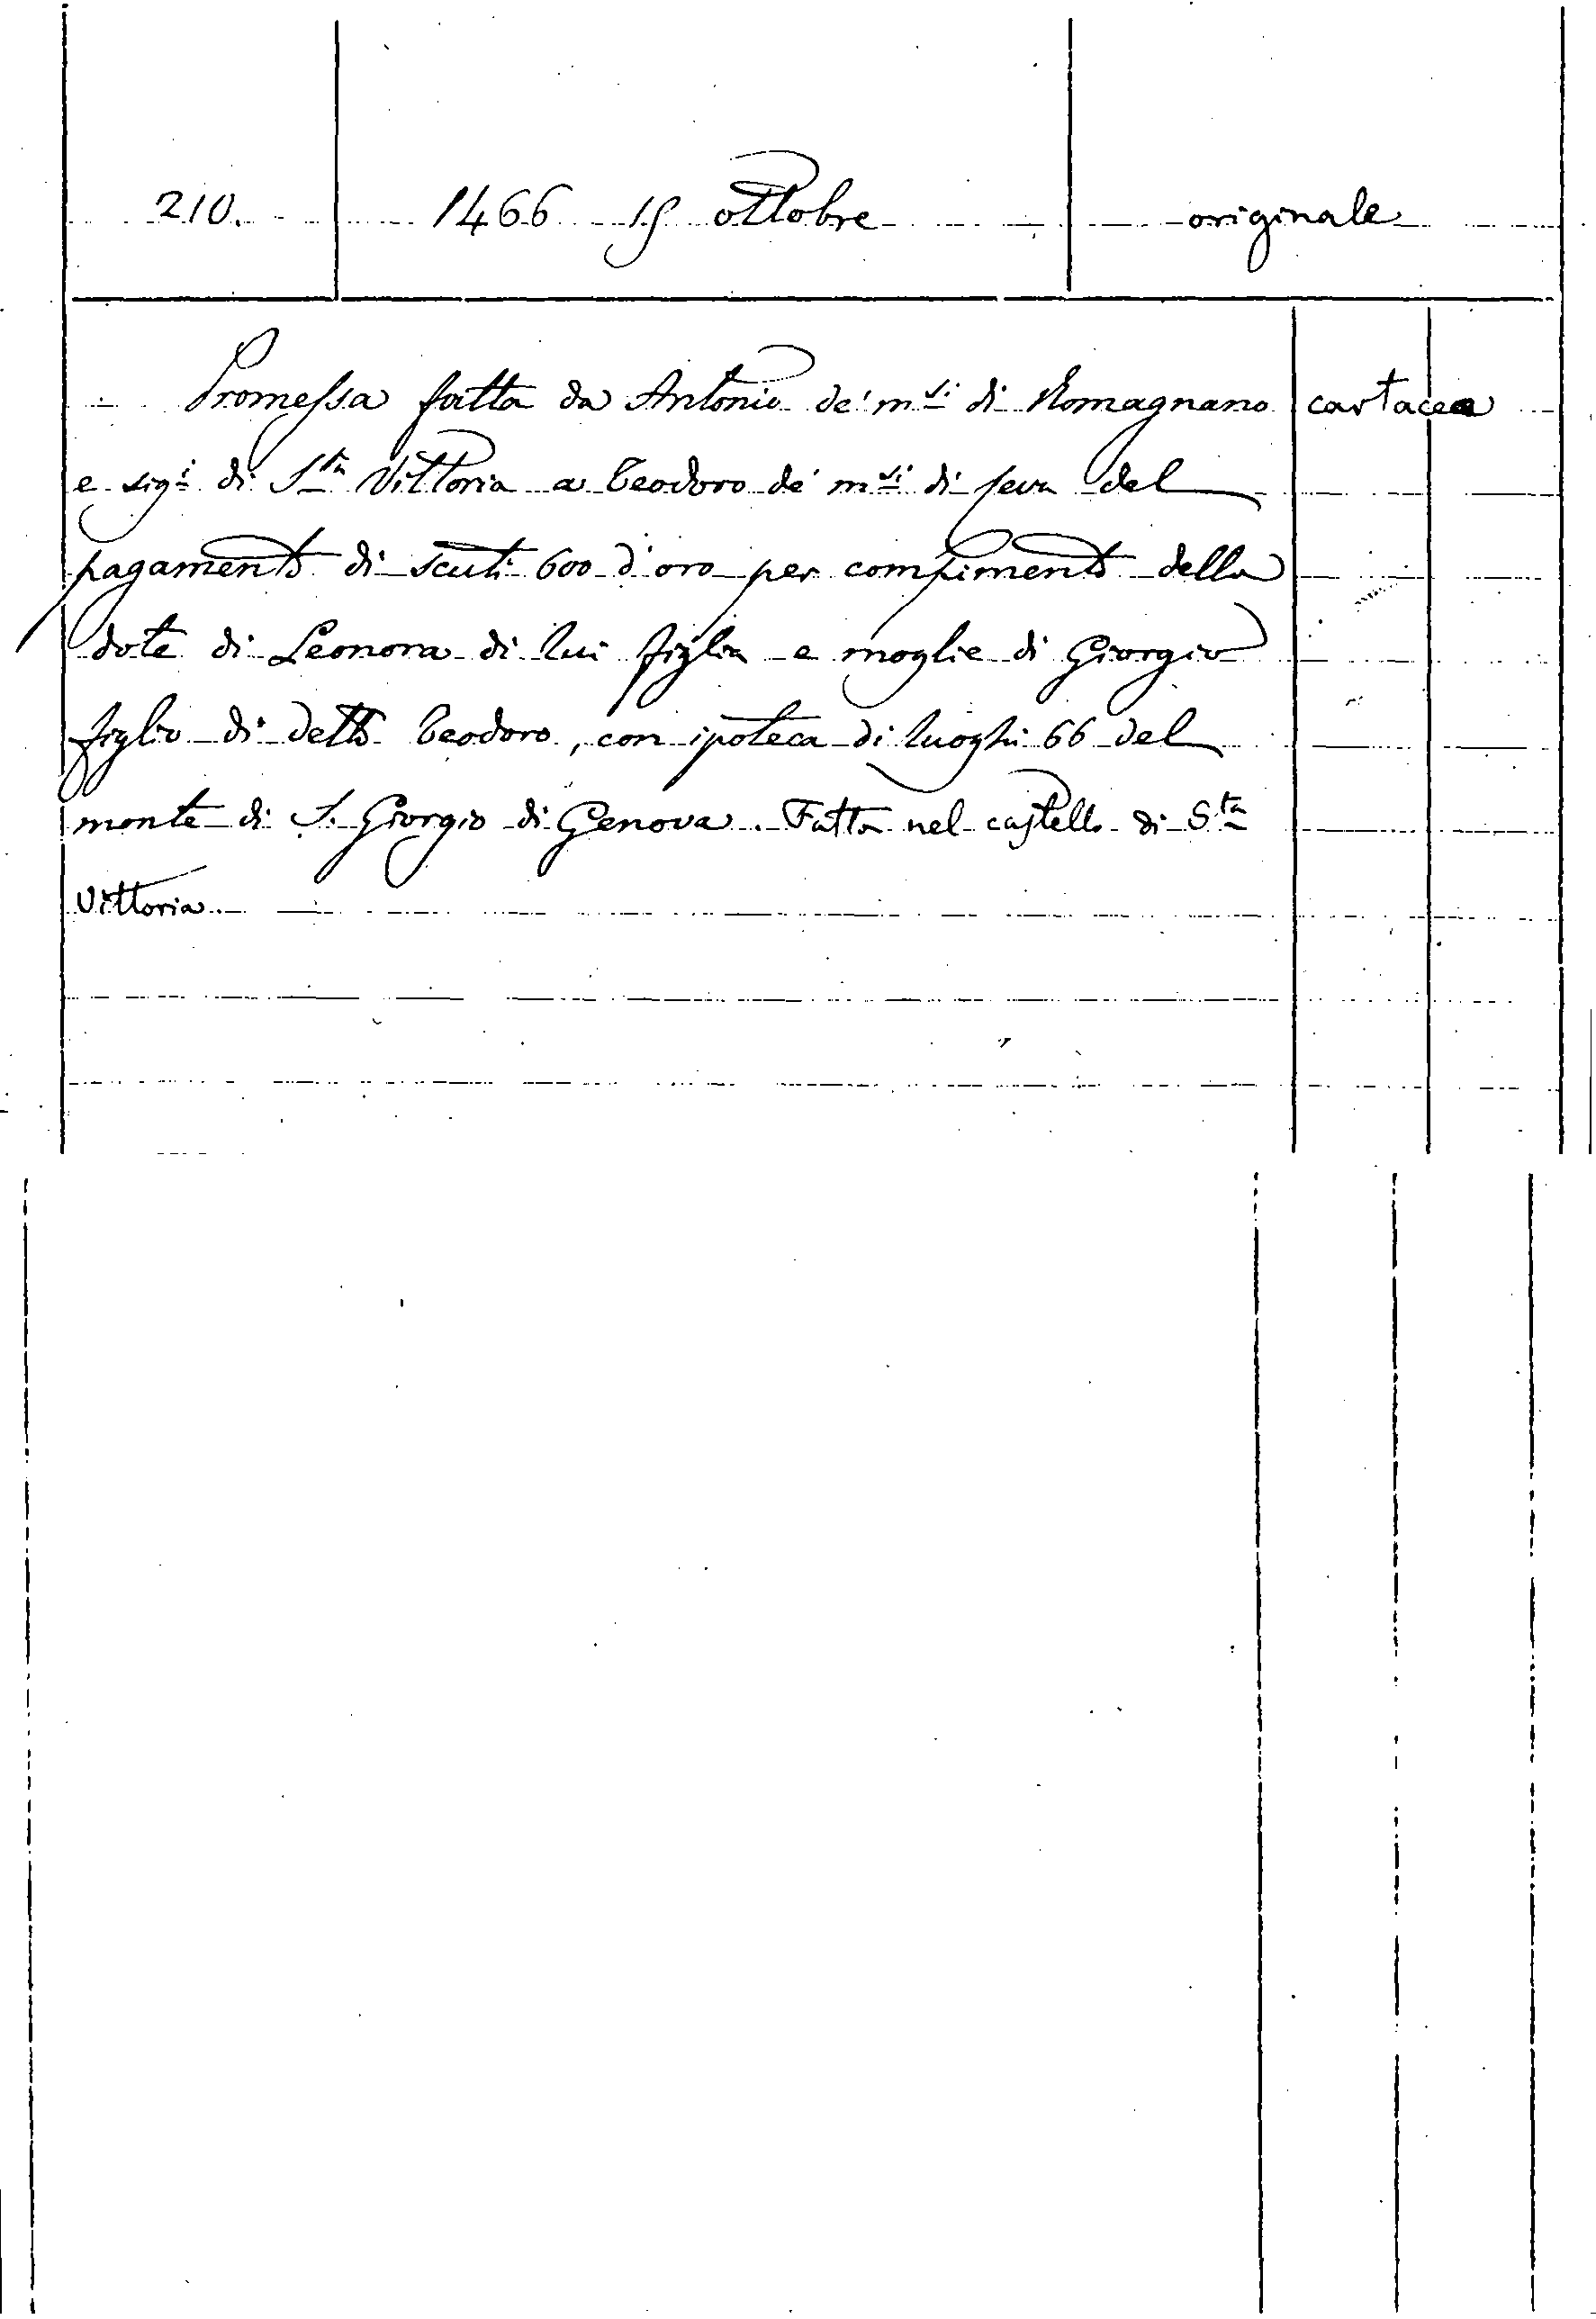 210. 1466 19 ottobre originale
Promessa fatta da Antonio de' m.si di Romagnano cartacea
e sig.i di S.ta Vittoria a Teodoro de' m.si di Ceva del
pagamento di scuti 600 d'oro per compimento della
dote di Leonora di lui figlia e moglie di Giorgio
figlio di detto Teodoro, con ipoteca di luoghi 66 del
monte di S. Giorgio di Genova. Fatta nel castello di S.ta
Vittoria.